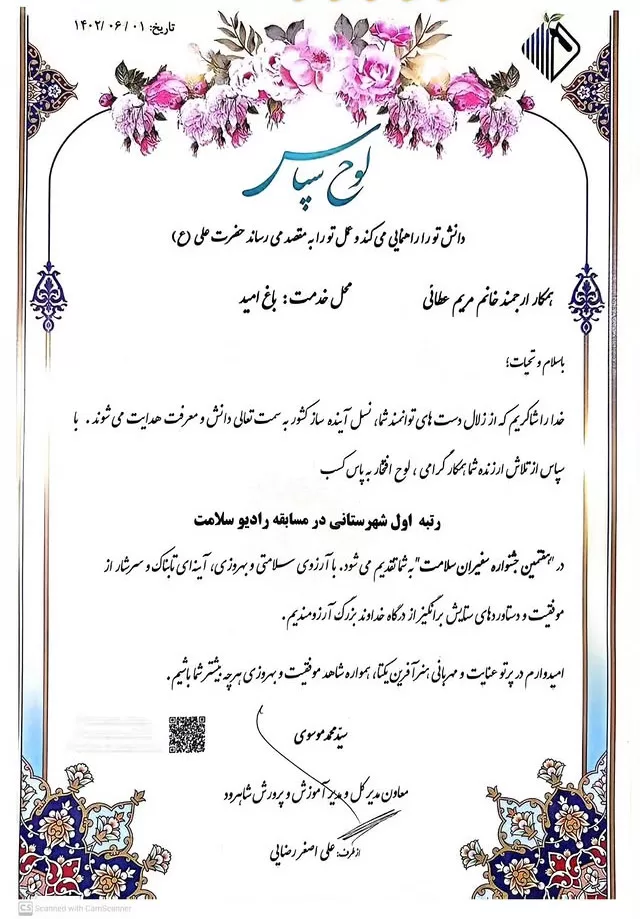 تاریخ: ۱۴۰۲/۰۶/۰۱
لوح سپاس
دانش تو را راهنمایی می کند و عمل تو را به مقصد می رساند حضرت علی (ع)
همکار ارجمند خانم مریم عطائی محل خدمت: باغ امید
باسلام و تحیات؛
خدا را شاکریم که از زلال دست های توانمند شما، نسل آینده ساز کشور به سمت تعالی دانش و معرفت هدایت می شوند. با
سپاس از تلاش ارزنده شما همکار گرامی، لوح افتخار به پاس کسب
رتبه اول شهرستانی در مسابقه رادیو سلامت
در "هفتمین جشنواره سفیران سلامت" به شما تقدیم می شود. با آرزوی سلامتی و بهروزی، آینه ای تابناک و سرشار از
موفقیت و دستاوردهای ستایش برانگیز از درگاه خداوند بزرگ آرزومندیم.
امیدوارم در پرتو عنایت و مهربانی هنرآفرین یکتا، همواره شاهد موفقیت و بهروزی هرچه بیشتر شما باشیم.
سیّد محمد موسوی
معاون مدیر کل و مدیر آموزش و پرورش شاهرود
از طرف: علی اصغر رضایی
CS Scanned with CamScanner